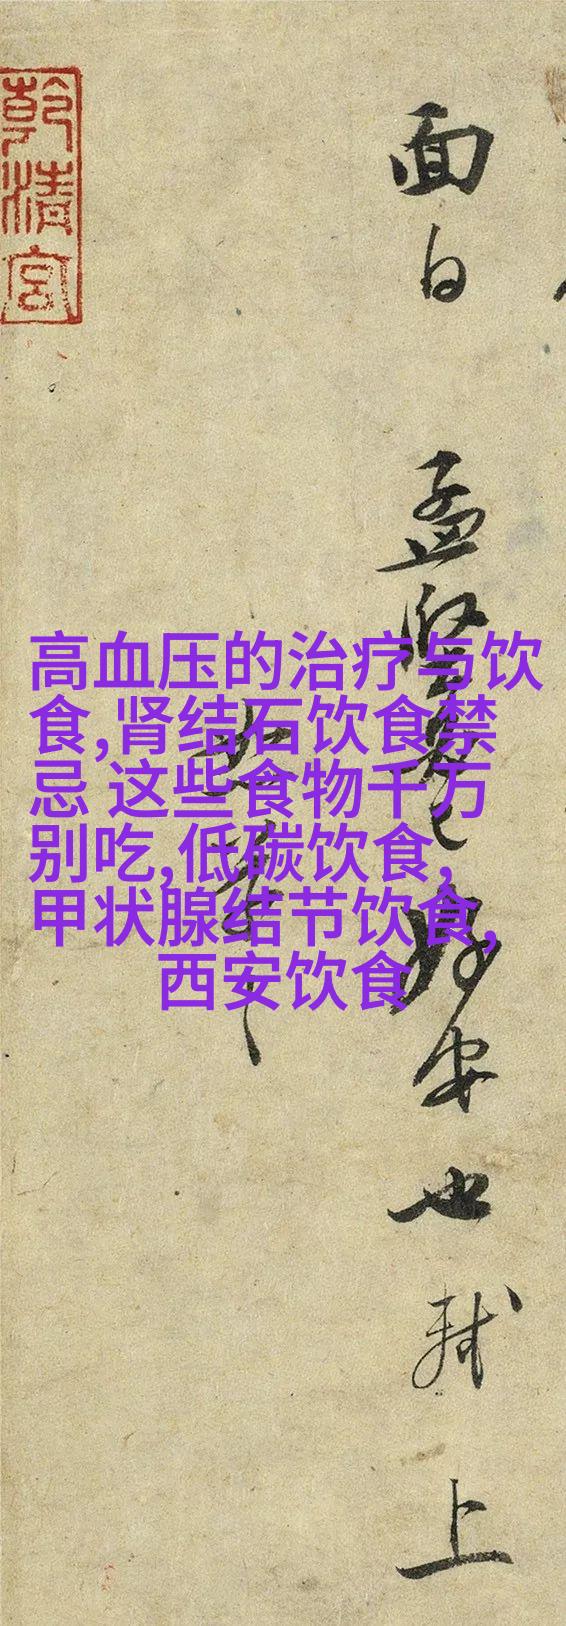 面白 孟堅 安也 軾上
乾清宮
高血压的治疗与饮
食,肾结石饮食禁
忌 这些食物千万
别吃,低碳饮食,
甲状腺结节饮食,
西安饮食